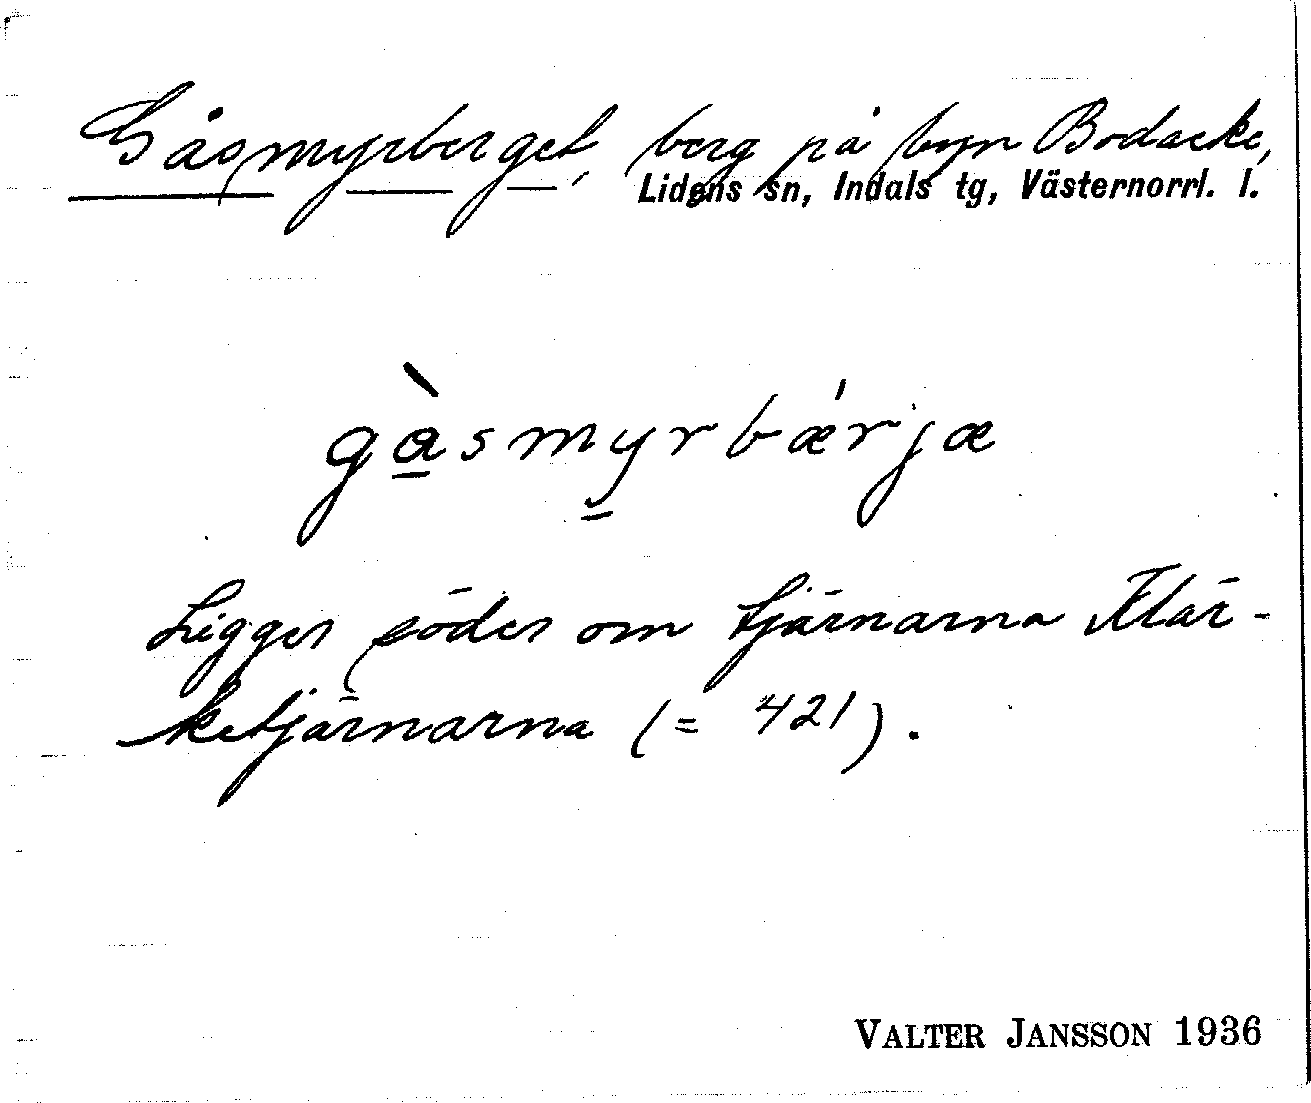 Gåsmyrberget, berg på byn Bodacke,
Lidens sn, Indals tg, Västernorrl. l.
gàsmyrbǽrjæ
Ligger söder om tjärnarna Flär-
ketjärnarna (= 421).
VALTER JANSSON 1936